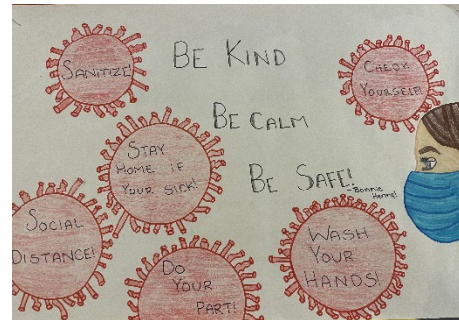 SANITIZE!
BE KIND
CHECK
YOURSELF!
BE CALM
STAY
HOME IF
YOUR SICK!
BE SAFE!
-Bonnie
Henry!
SOCIAL
DISTANCE!
WASH
YOUR
HANDS!
DO
YOUR
PART!